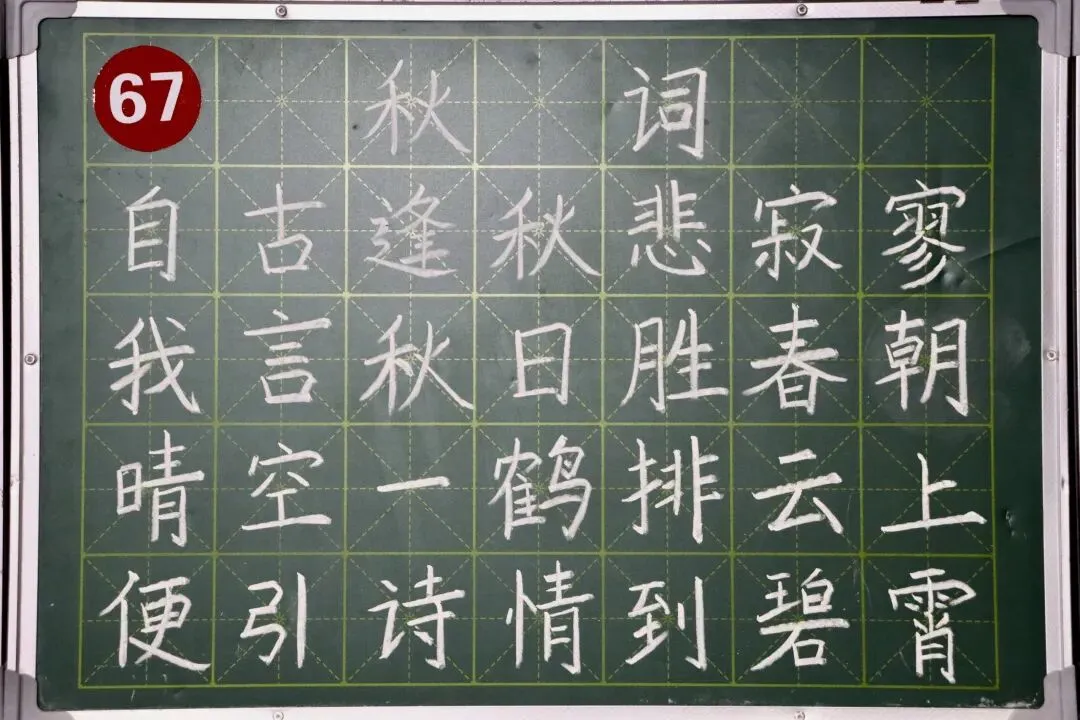 67
秋词
自古逢秋悲寂寥
我言秋日胜春朝
晴空一鹤排云上
便引诗情到碧霄